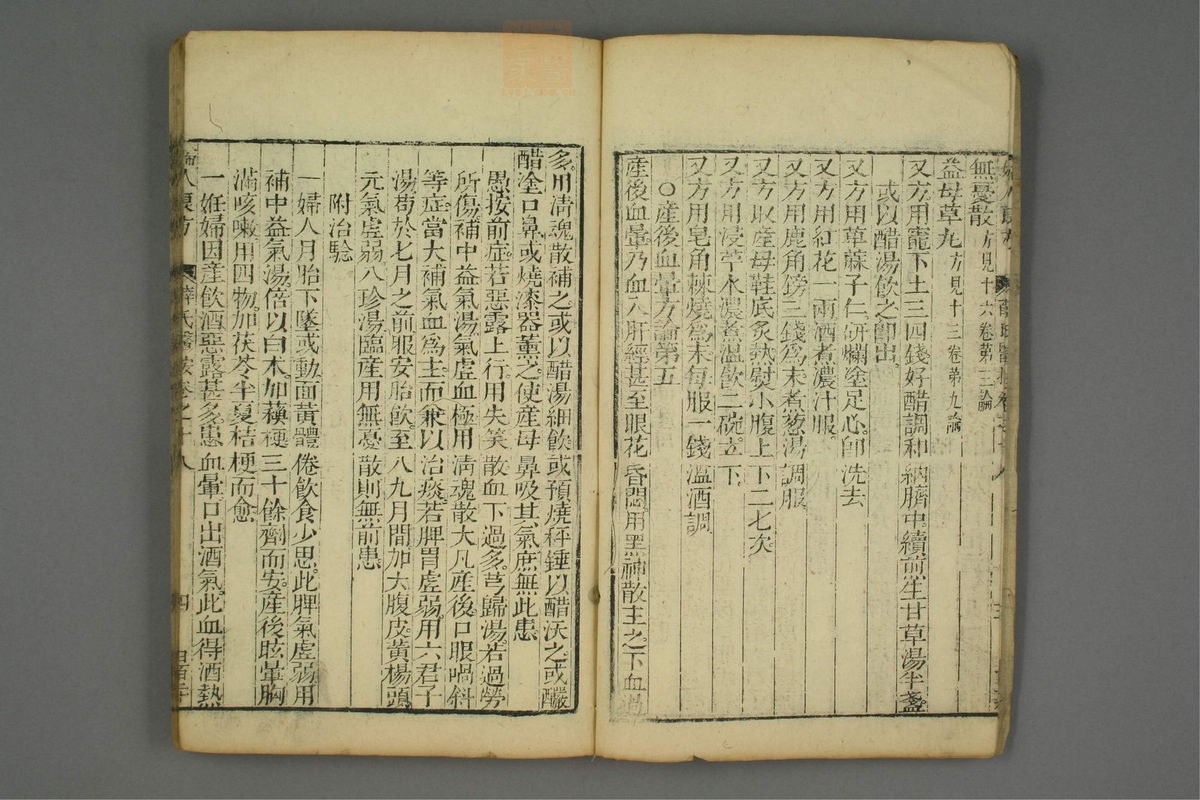 無憂散方見十六卷第三論
益母草丸方見十三卷第九論
又方用竈下土三四錢好醋調和納臍中續前生甘草湯半盞
或以醋湯飲之即出
又方用萆蔴子仁研爛塗足心即洗去
又方用紅花一兩酒煮濃汁服
又方用鹿角鎊三錢爲末煮葱湯調服
又方取產母鞋底炙熱熨小腹上下二七次
又方用浸苧水濃煮温飲二碗立下
又方用皂角棘燒爲末每服一錢溫酒調
○產後血暈方論第五
產後血暈乃血入肝經甚至眼花昏悶用黑神散主之下血過
多用清魂散補之或以醋湯細飲或預燒秤錘以醋沃之或釅
醋塗口鼻或燒漆器薰之使產母鼻吸其氣庶無此患
愚按前症若惡露上行用失笑散血下過多芎歸湯若過勞
所傷補中益氣湯氣虛血極用清魂散大凡產後口眼喎斜
等症當大補氣血爲主而兼以治痰若脾胃虛弱用六君子
湯或於七月之前服安胎飲至八九月間加大腹皮黃楊頭
元氣虛弱八珍湯臨產用無憂散則無前患
附治驗
一婦八月胎下墜或動面黃體倦飲食少思此脾氣虛弱用
補中益氣湯倍以白术加蘇梗三十餘劑而安產後眩暈胸
滿咳嗽用四物加茯苓半夏桔梗而愈
一姙婦因產飲酒惡露甚多患血暈口出酒氣此血得酒熱
婦人良方
薛氏醫按卷之十八
四